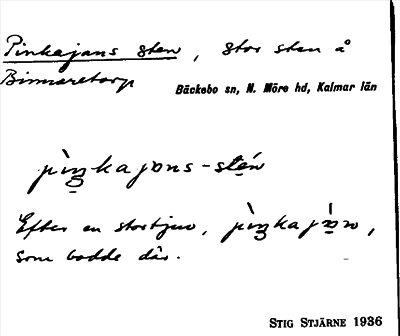 Pinkajans sten, stor sten å
Binnaretorp
Bäckebo sn, N. Möre hd, Kalmar län
pìŋkajɒns-stén
Efter en stortjuv, pìŋkajɒ̀n,
som bodde där.
STIG STJÄRNE 1936